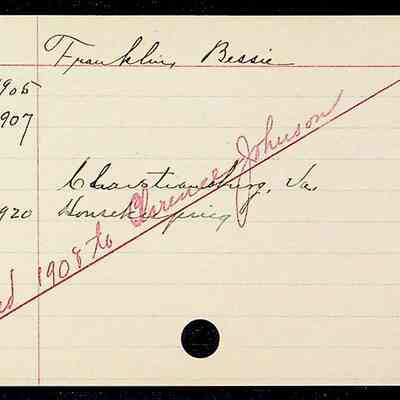 Franklin, Bessie
1905
1907
Christiansburg, Va.
1920 Housekeeping
ed 1908 to Clarence Johnson